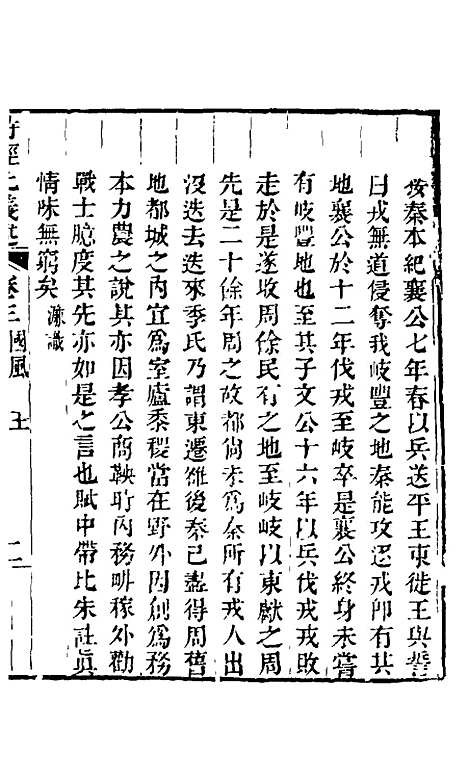 按秦本紀襄公七年春以兵送平王東徙王與誓
曰戎無道侵奪我岐豐之地秦能攻逐戎卽有其
地襄公於十二年伐戎至岐卒是襄公終身未嘗
有岐豐地也至其子文公十六年以兵伐戎戎敗
走於是遂收周餘民有之地至岐岐以東獻之周
先是二十餘年周之故都尙未爲秦所有戎人出
沒迭去迭來季氏乃謂東遷雒後秦已盡得周舊
地都城之內宜爲室廬黍稷當在野外因創爲務
本力農之說其亦因孝公商鞅時內務耕稼外勸
戰士臆度其先亦如是之言也賦中帶比朱註眞
情味無窮矣 濂識
卷三 國風 王 二